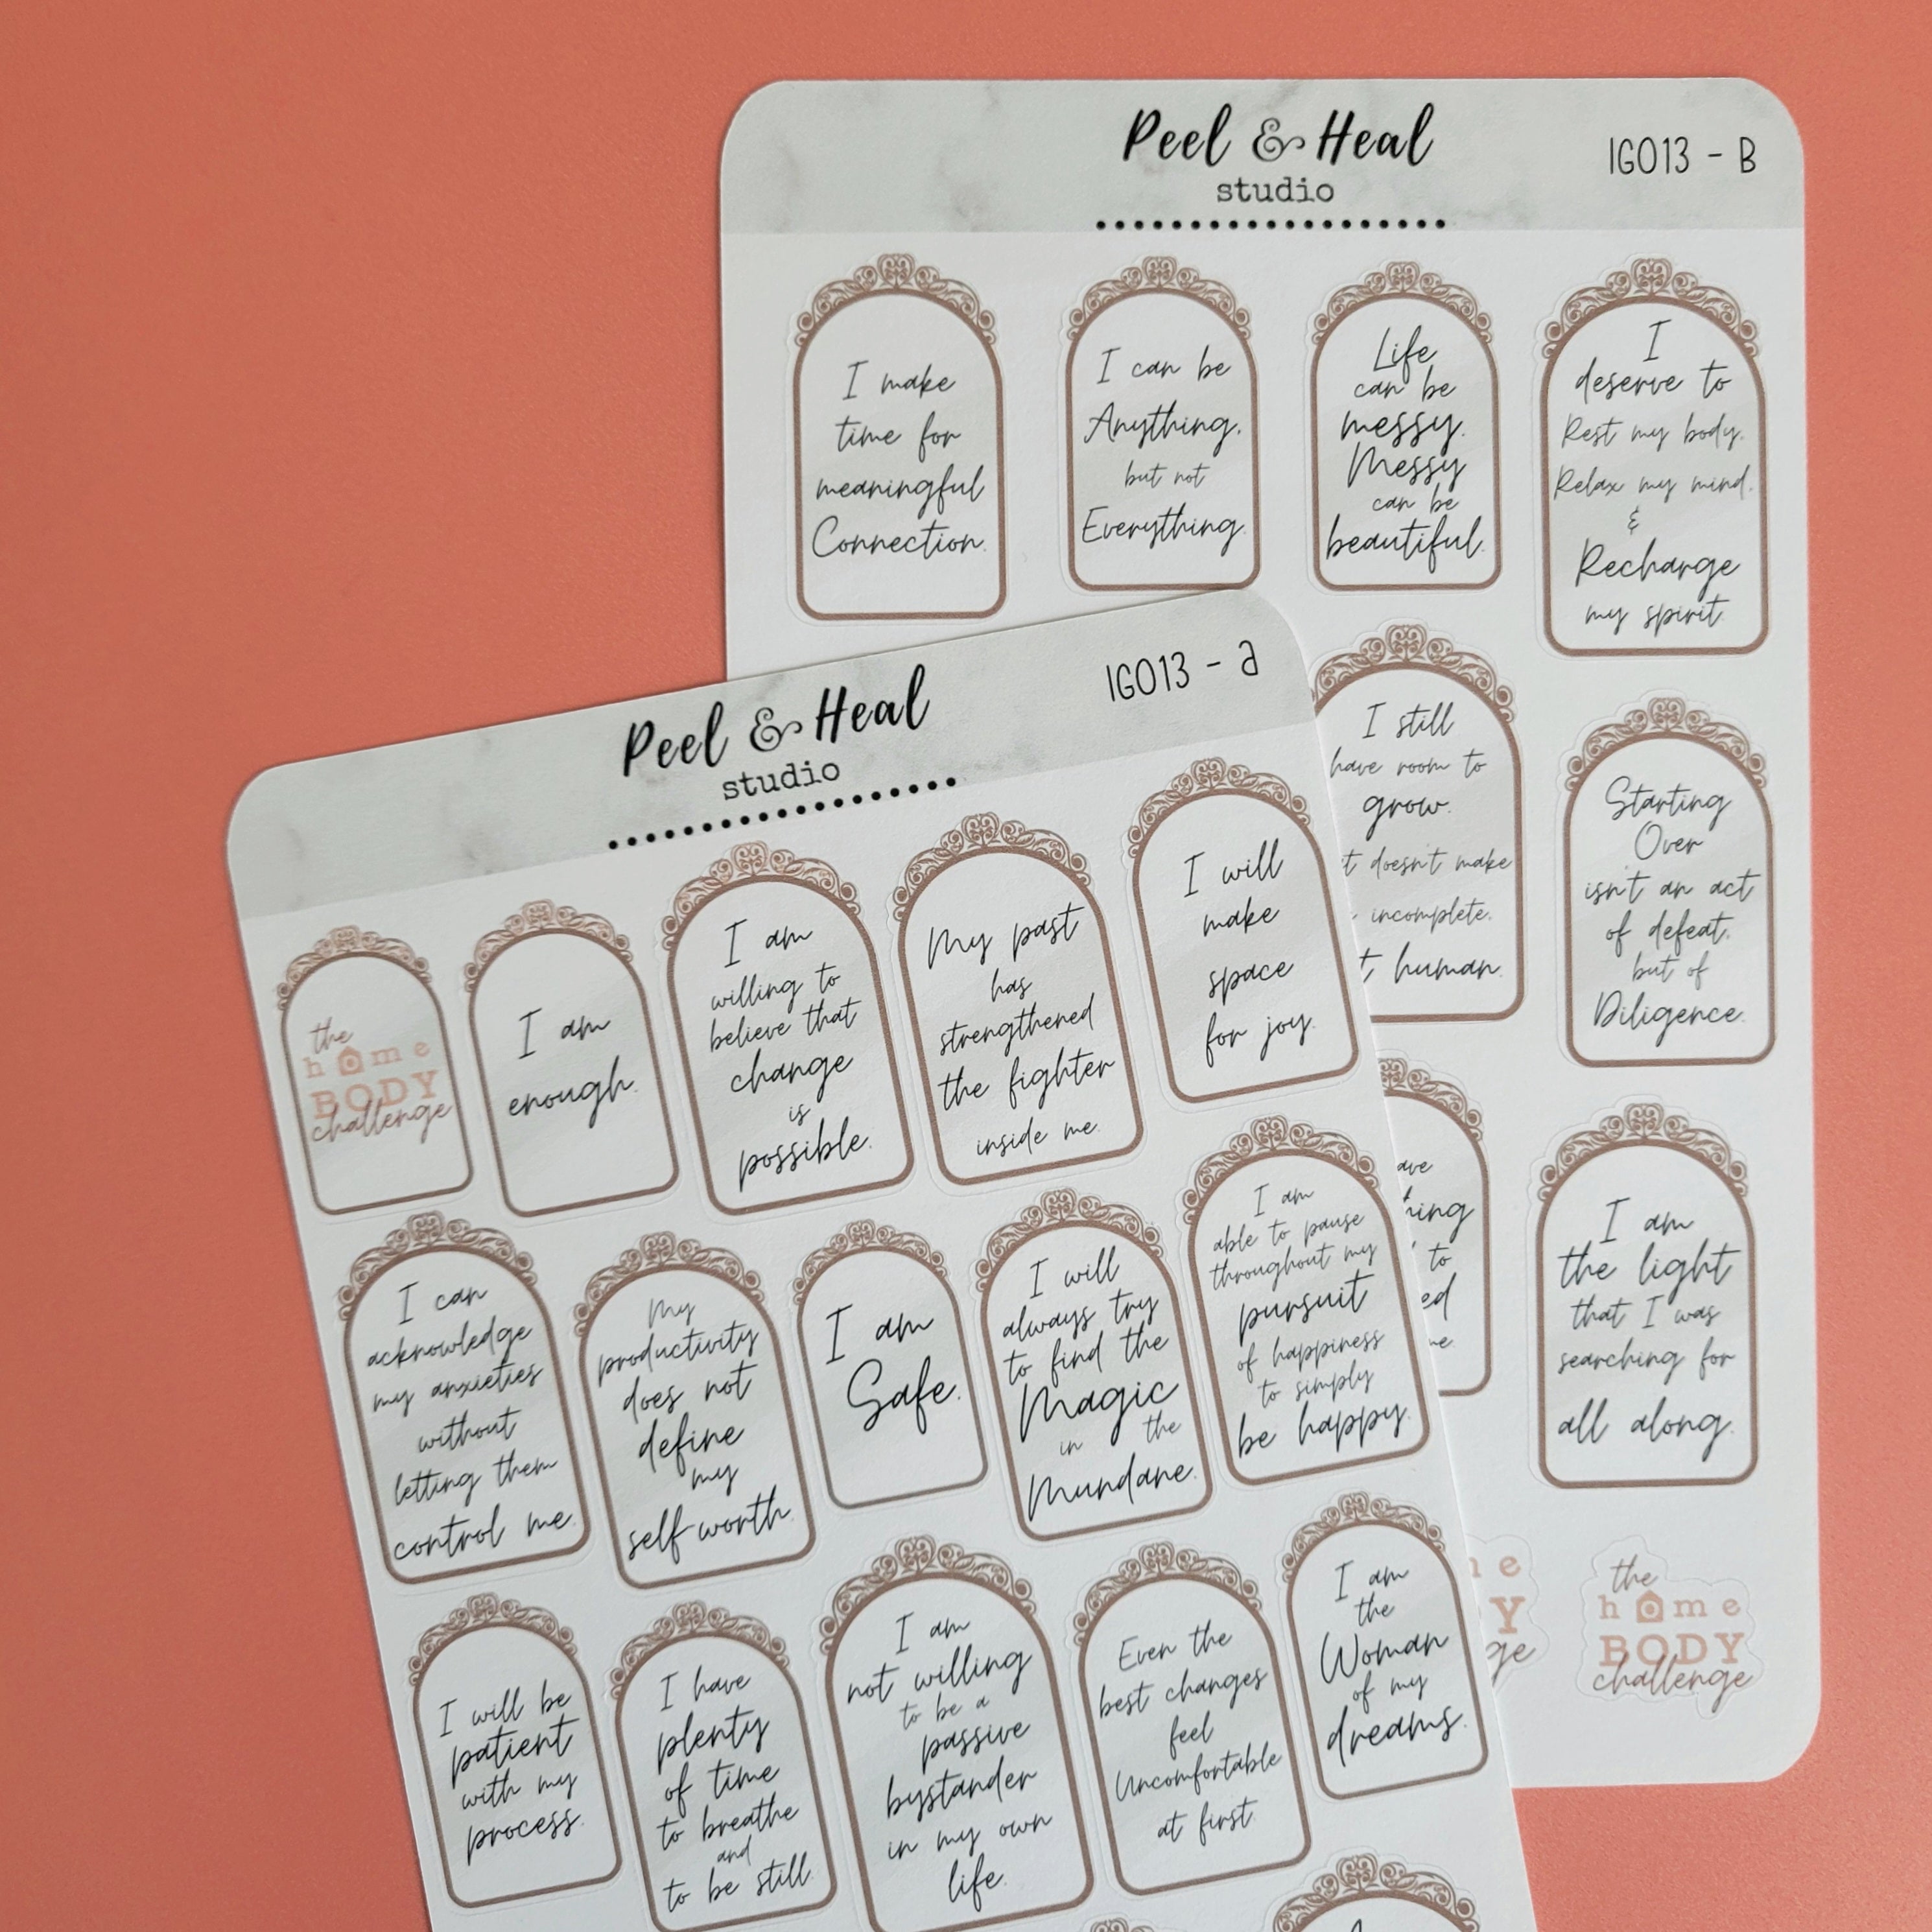 Peel & Heal
studio
IGO13 - B
I make
time for
meaningful
Connection.
I can be
Anything,
but not
Everything.
Life
can be
messy.
Messy
can be
beautiful.
I
deserve to
Rest my body.
Relax my mind.
&
Recharge
my spirit.
I still
have room to
grow.
doesn't make
incomplete.
human.
Starting
Over
isn't an act
of defeat,
but of
Diligence.
to
I am
the light
that I was
searching for
all along.
the
home
BODY
challenge
Peel & Heal
studio
IGO13 - a
the
home
BODY
challenge
I am
enough.
I am
willing to
believe that
change
is
possible.
My past
has
strengthened
the fighter
inside me.
I will
make
space
for joy.
I can
acknowledge
my anxieties
without
letting them
control me.
My
productivity
does not
define
my
self-worth.
I am
Safe.
I will
always try
to find the
Magic
in the
Mundane.
I am
able to pause
throughout my
pursuit
of happiness
to simply
be happy.
I will be
patient
with my
process.
I have
plenty
of time
to breathe
and
to be still.
I am
not willing
to be a
passive
bystander
in my own
life.
Even the
best changes
feel
Uncomfortable
at first.
I am
the
Woman
of my
dreams.